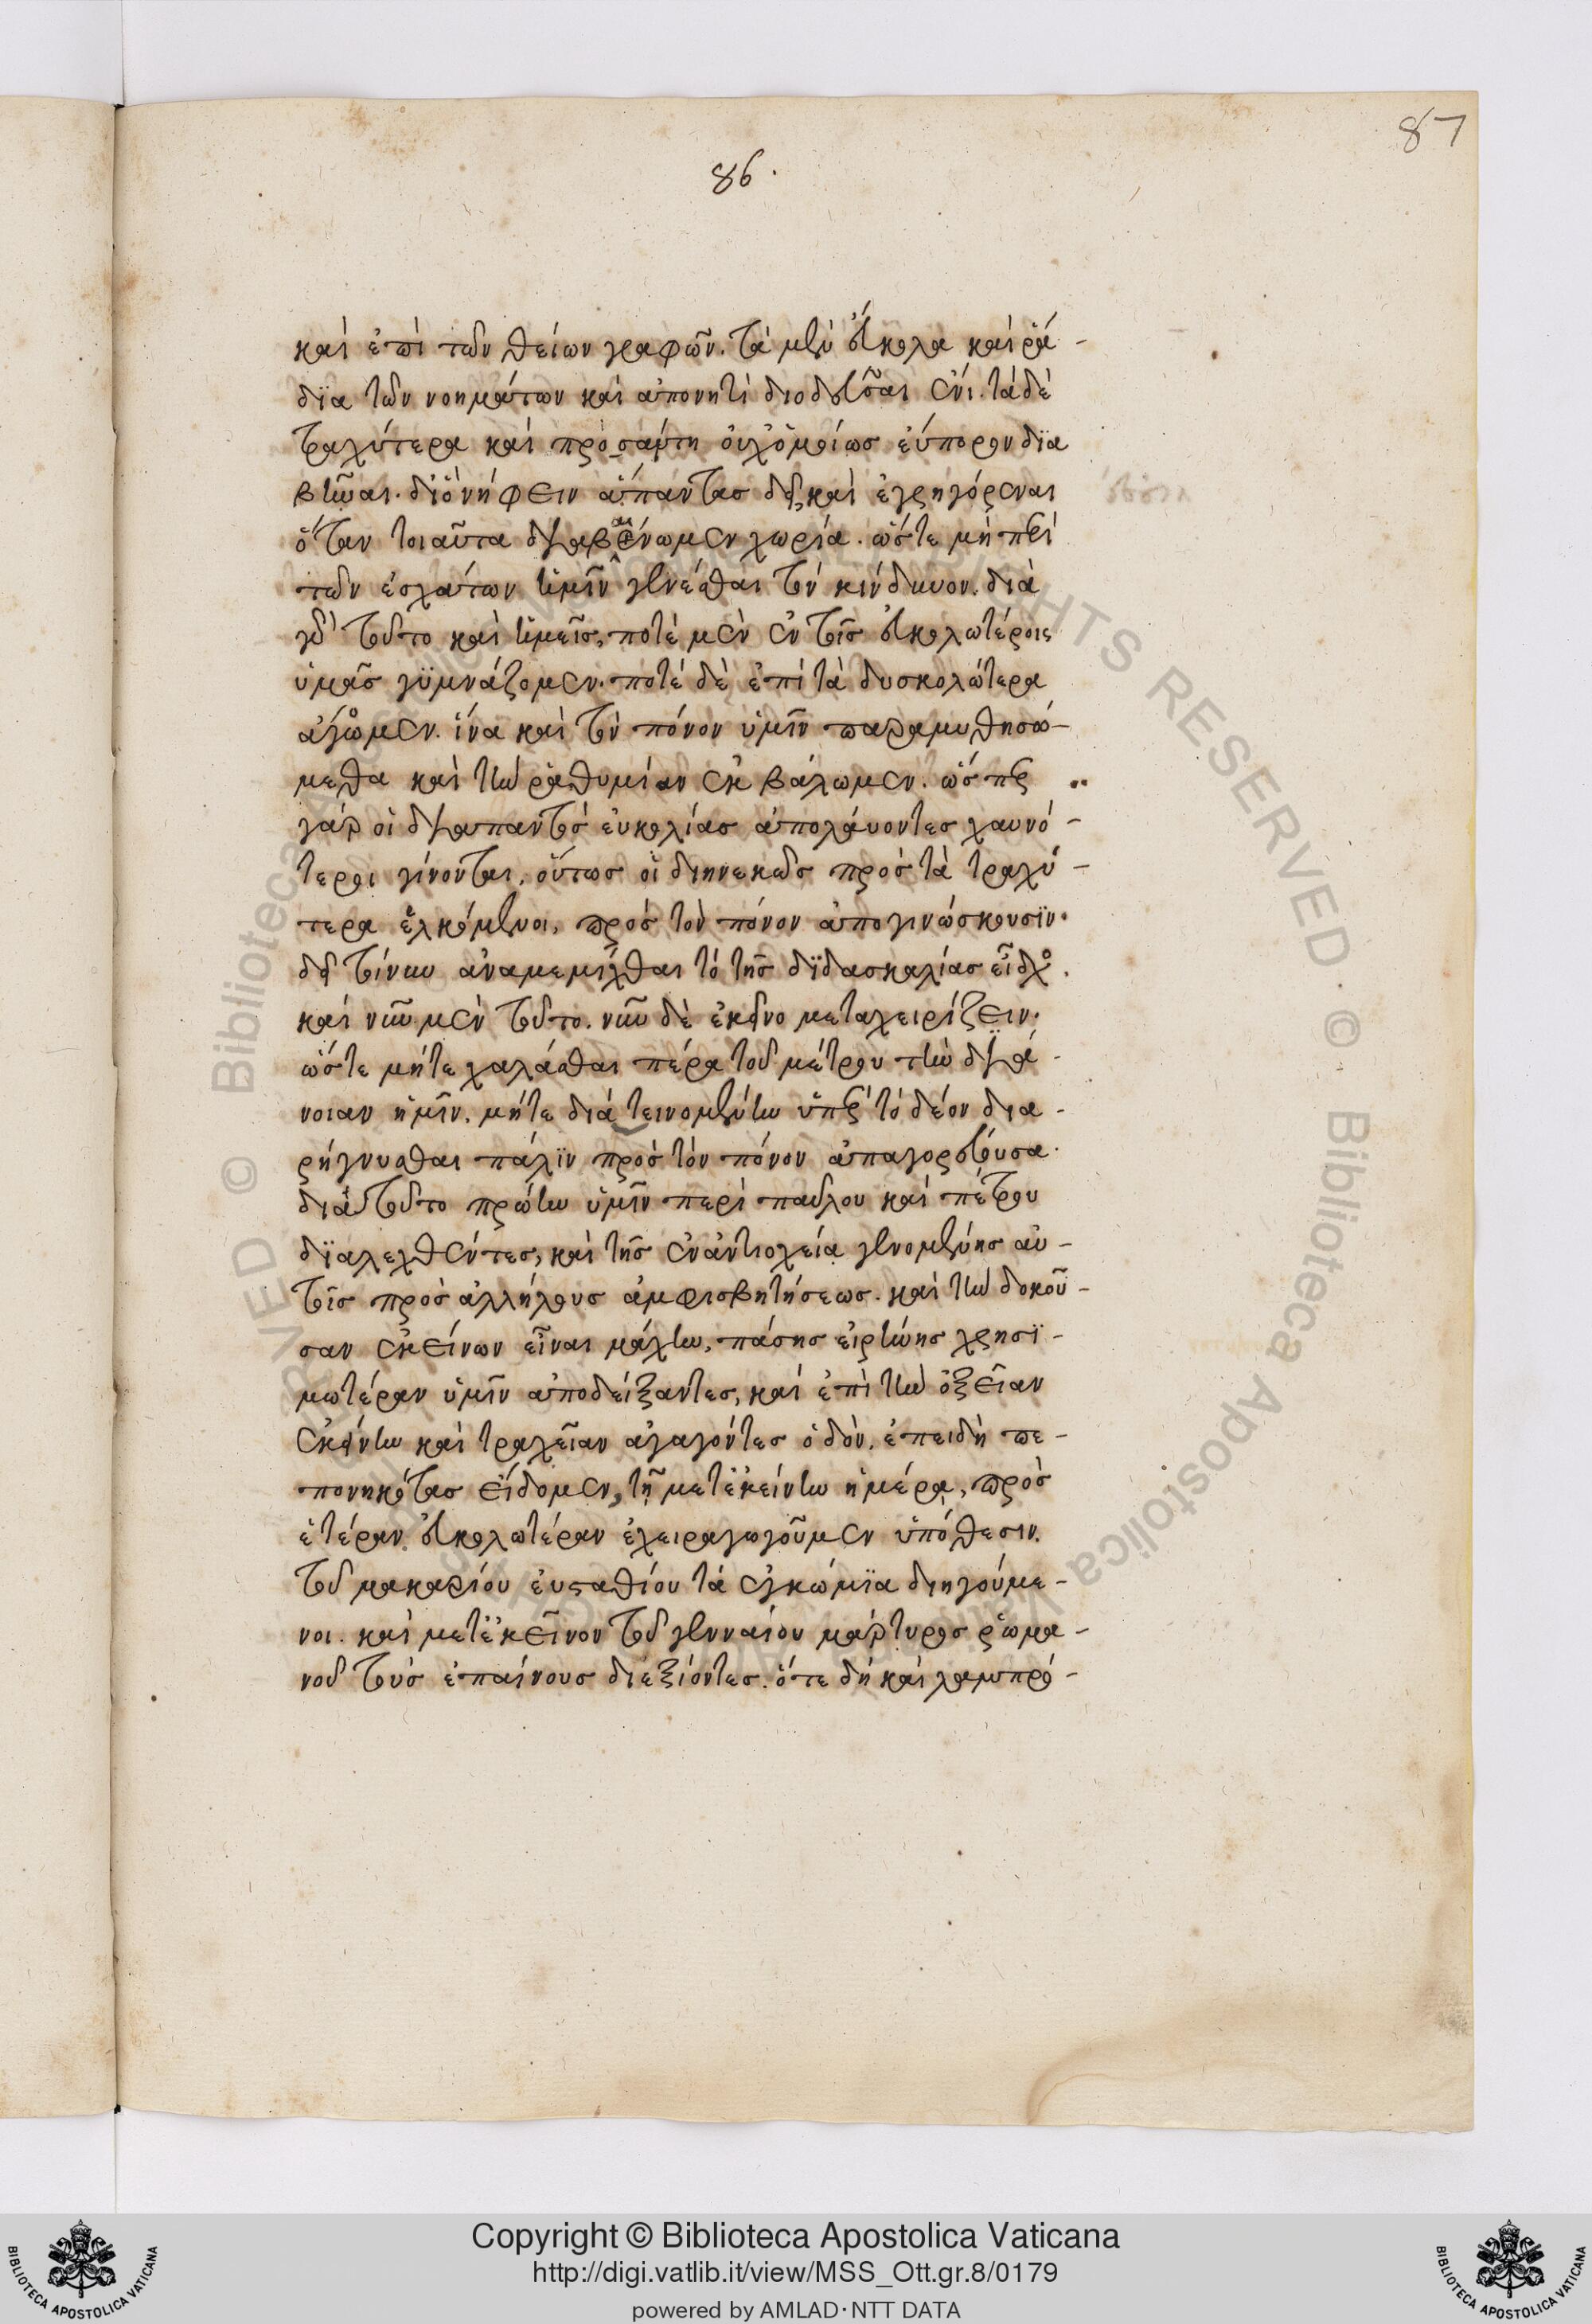 87
86.
καὶ ἐπὶ τῶν θείων γραφῶν. τὰ μὲν εὔκολα καὶ ῥά-
δϊα τῶν νοημάτων καὶ ἀπονητὶ διοδεῦσαι ἔνι. τὰ δὲ
τραχύτερα καὶ προσάντη οὐχ ὁμοίως εὔπορον δϊα
βῆναι. διὸ νήφειν ἅπαντας δεῖ, καὶ ἐγρηγορέναι
ὅταν τοιαῦτα διαβαίνωμεν χωρία. ὥστε μὴ περὶ
τῶν ἐσχάτων ἡμῖν γενέσθαι τὸν κίνδυνον. διὰ
γὰρ τοῦτο καὶ ἡμεῖς, ποτὲ μὲν ἐν τοῖς εὐκολωτέροις
ὑμᾶς γϋμνάζομεν. ποτὲ δὲ ἐπὶ τὰ δυσκολώτερα
ἄγομεν. ἵνα καὶ τὸν πόνον ὑμῖν παραμυθησώ-
μεθα καὶ τὴν ῥαθυμίαν ἐκβάλωμεν. ὥσπερ
γὰρ οἱ διαπαντὸς εὐκολίας ἀπολάυοντες χαυνό-
τεροι γίνονται, οὕτως οἱ διηνεκῶς πρὸς τὰ τραχύ-
τερα ἑλκόμενοι, πρὸς τὸν πόνον ἀπογινώσκουσϊν.
δεῖ τοίνυν ἀναμεμίχθαι τὸ τῆς δϊδασκαλίας εἶδος.
καὶ νῦν μὲν τοῦτο. νῦν δὲ ἐκεῖνο μεταχειρίζειν.
ὥστε μήτε χαλάσθαι πέρα τοῦ μέτρου τὴν διά-
νοιαν ἡμῖν, μήτε διατεινομένην ὑπὲρ τὸ δέον δια-
ρήγνυσθαι πάλϊν πρὸς τὸν πόνον ἀπαγορεύουσα.
διὰ τοῦτο πρώην ὑμῖν περὶ παύλου καὶ πέτρου
δϊαλεχθέντες, καὶ τῆς ἐν ἀντιοχεία γενομένης αὐ-
τοῖς πρὸς ἀλλήλους ἀμφισβητήσεως. καὶ τὴν δοκοῦ-
σαν ἐκείνων εἶναι μάχην, πάσης εἰρήνης χρησϊ-
μωτέραν ὑμῖν ἀποδείξαντες, καὶ ἐπὶ τὴν ὀξεῖαν
ἐκείνην καὶ τραχεῖαν ἀγαγόντες ὁδὸν, ἐπειδὴ πε-
πονηκότας εἴδομεν, τῇ μετ' ἐκείνην ἡμέρᾳ, πρὸς
ἑτέραν εὐκολωτέραν ἐχειραγωγοῦμεν ὑπόθεσιν.
τοῦ μακαρίου εὐσταθίου τὰ ἐγκώμϊα διηγούμε-
νοι. καὶ μετ' ἐκεῖνον τοῦ γενναίου μάρτυρος ῥωμα-
νοῦ τοὺς ἐπαίνους διεξιόντες. ὅτε δὴ καὶ λαμπρό-
Copyright © Biblioteca Apostolica Vaticana
http://digi.vatlib.it/view/MSS_Ott.gr.8/0179
powered by AMLAD·NTT DATA